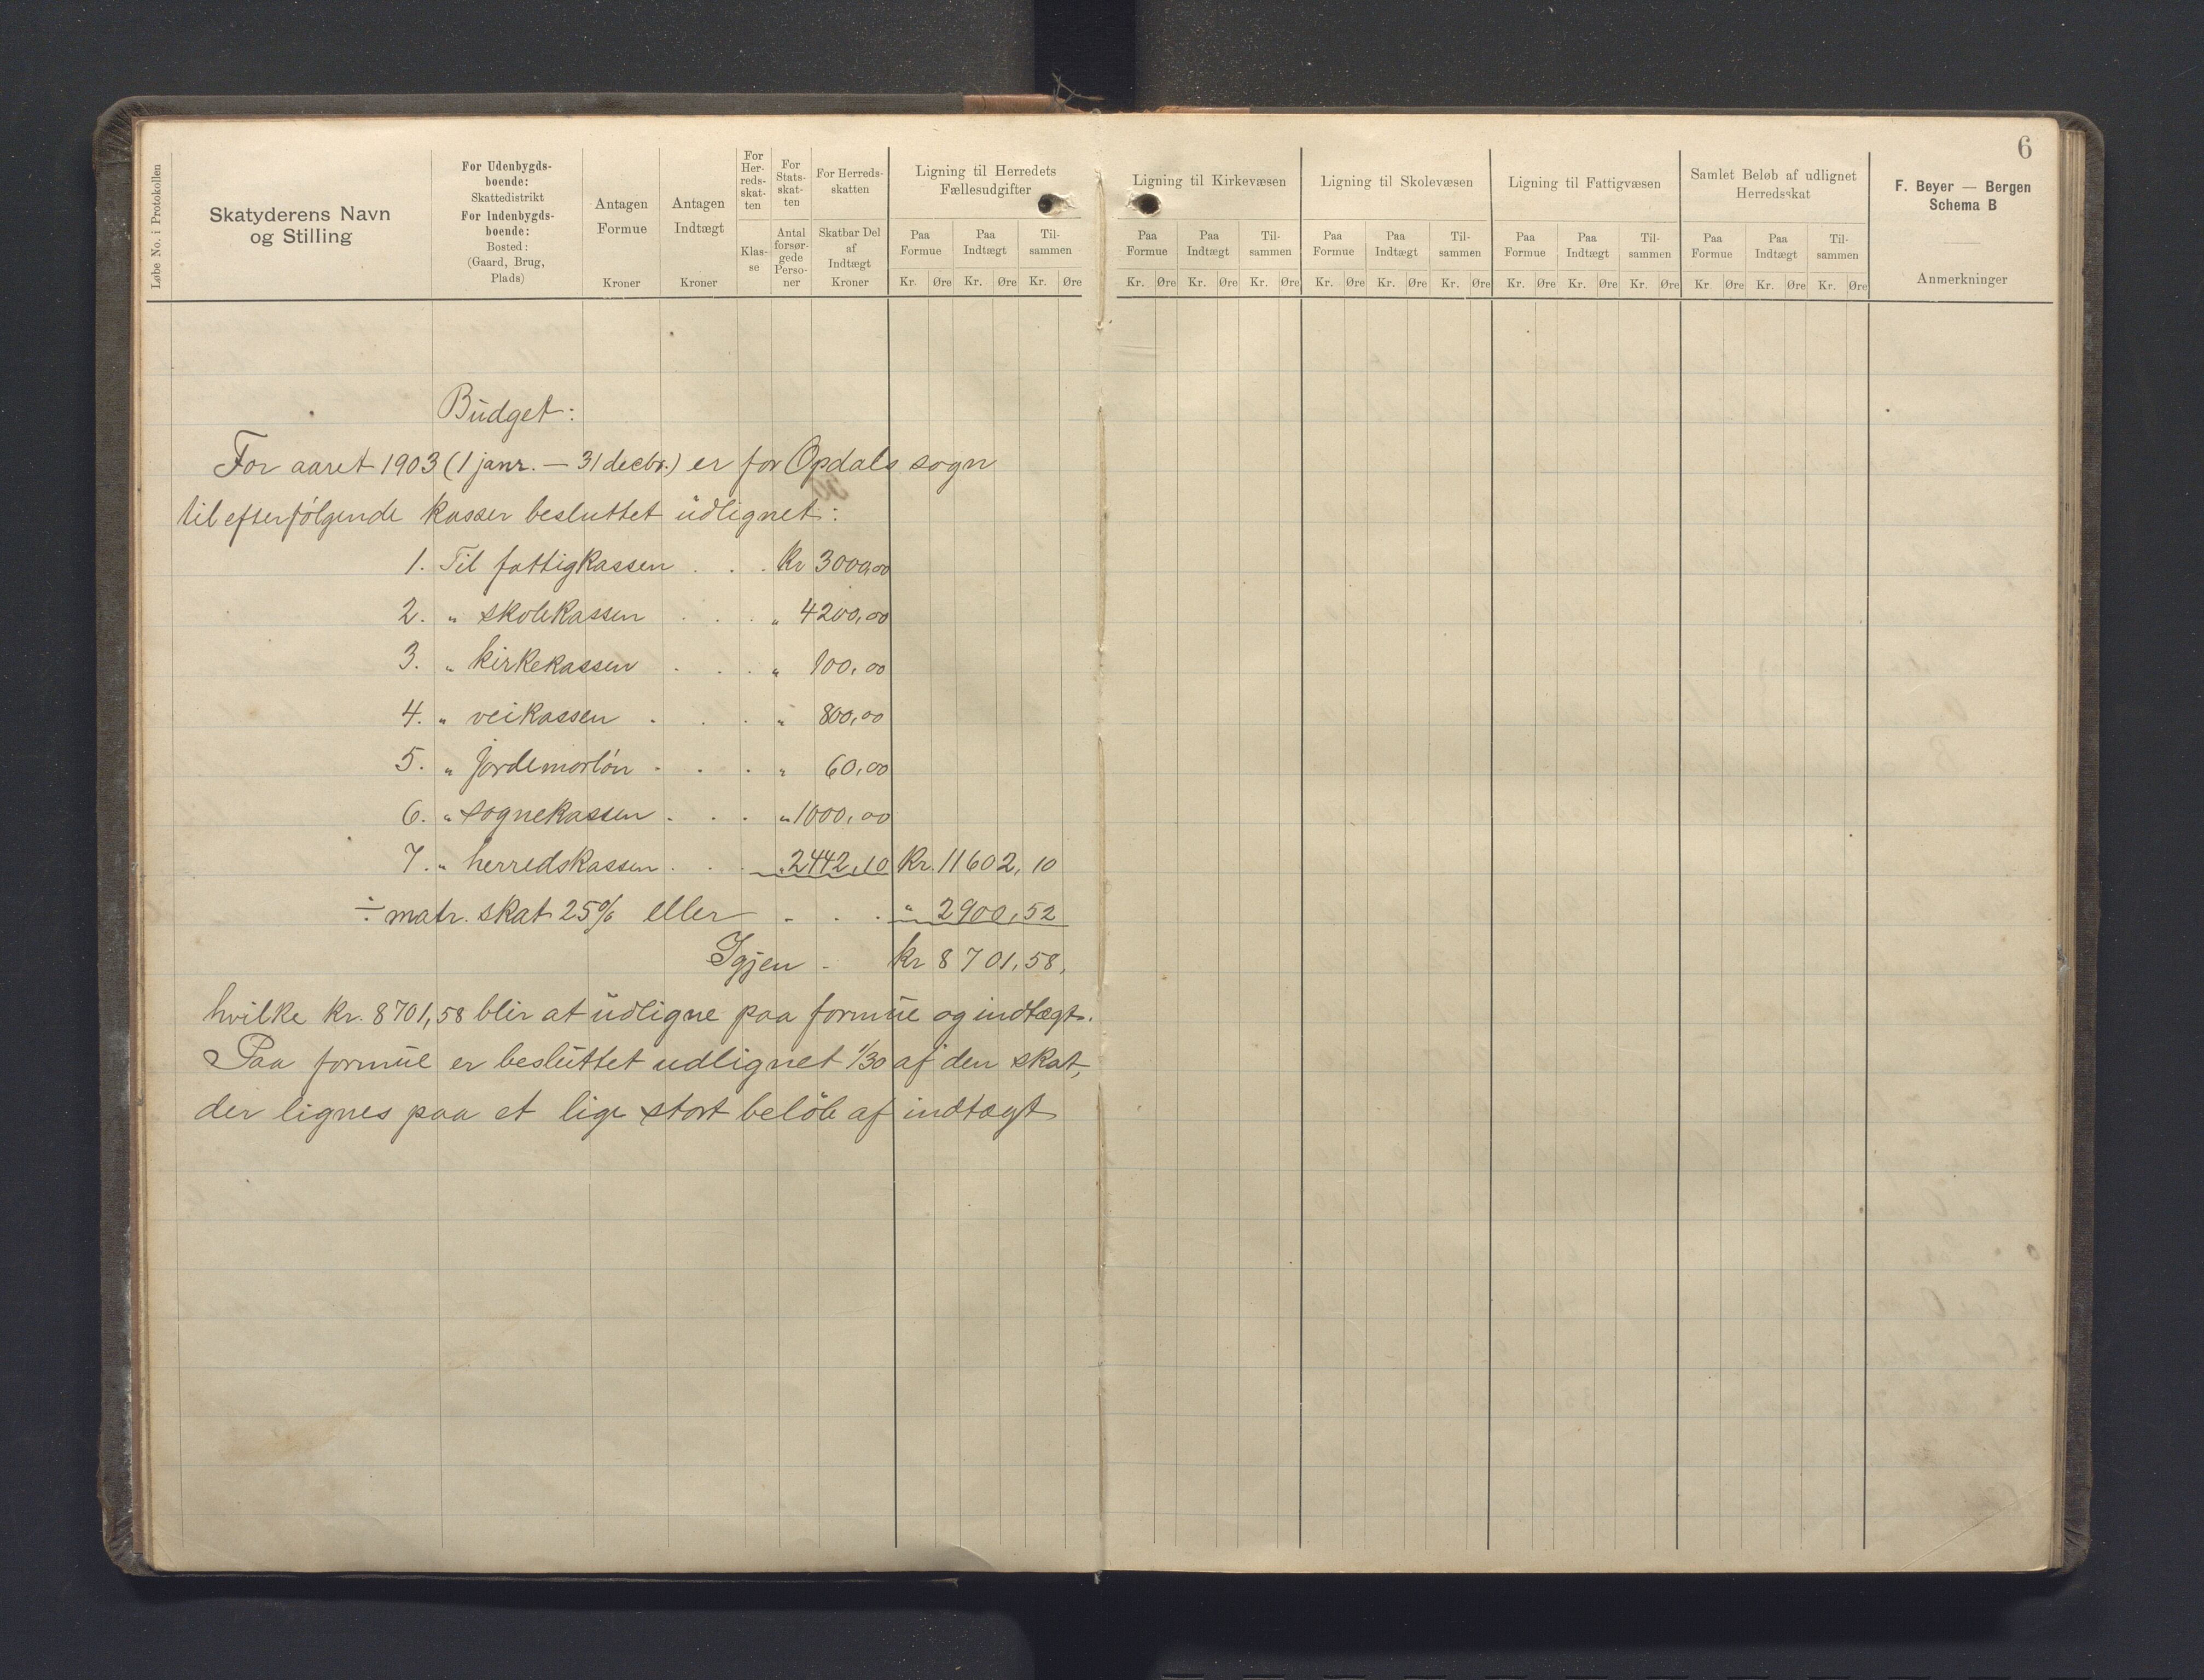 6
Løbe No. i Protokollen
Skatyderens Navn
og Stilling
For Udenbygds-
boende:
Skattedistrikt
For Indenbygds-
boende:
Bosted:
(Gaard, Brug,
Plads)
Antagen
Formue
Kroner
Antagen
Indtægt
Kroner
For
Her-
reds-
skat-
ten
Klas-
se
For
Stats-
skat-
ten
Antal
forsør-
gede
Perso-
ner
For Herreds-
skatten
Skatbar Del
af
Indtægt
Kroner
Ligning til Herredets
Fællesudgifter
Paa Formue Paa Indtægt Til-sammen
Kr. Øre Kr. Øre Kr. Øre
Ligning til Kirkevæsen
Paa Formue Paa Indtægt Til-sammen
Kr. Øre Kr. Øre Kr. Øre
Ligning til Skolevæsen
Paa Formue Paa Indtægt Til-sammen
Kr. Øre Kr. Øre Kr. Øre
Ligning til Fattigvæsen
Paa Formue Paa Indtægt Til-sammen
Kr. Øre Kr. Øre Kr. Øre
Samlet Beløb af udlignet
Herredsskat
Paa Formue Paa Indtægt Til-sammen
Kr Øre Kr. Øre Kr. Øre
F. Beyer — Bergen
Schema B
Anmerkninger
Budget:
For aaret 1903 (1 janr. – 31 decbr.) er for Opdals sogn
til efterfølgende kasser besluttet udlignet:
1. Til fattigkassen . . . Kr 3000,00
2. " skolekassen . . . " 4200,00
3. " kirkekassen . . . " 100,00
4. " veikassen . . . " 800,00
5. " jordemorløn . . . " 60,00
6. " sognekassen . . . " 1000,00
7. " herredskassen . . . " 2442,10 Kr. 11602,10
÷ matr. skat 25% eller . . . " 2900,52
Igjen - kr 8701,58,
hvilke kr. 8701,58 blir at udligne paa formue og indtægt.
Paa formue er besluttet udlignet 1/30 af den skat,
der lignes paa et lige stort beløb af indtægt